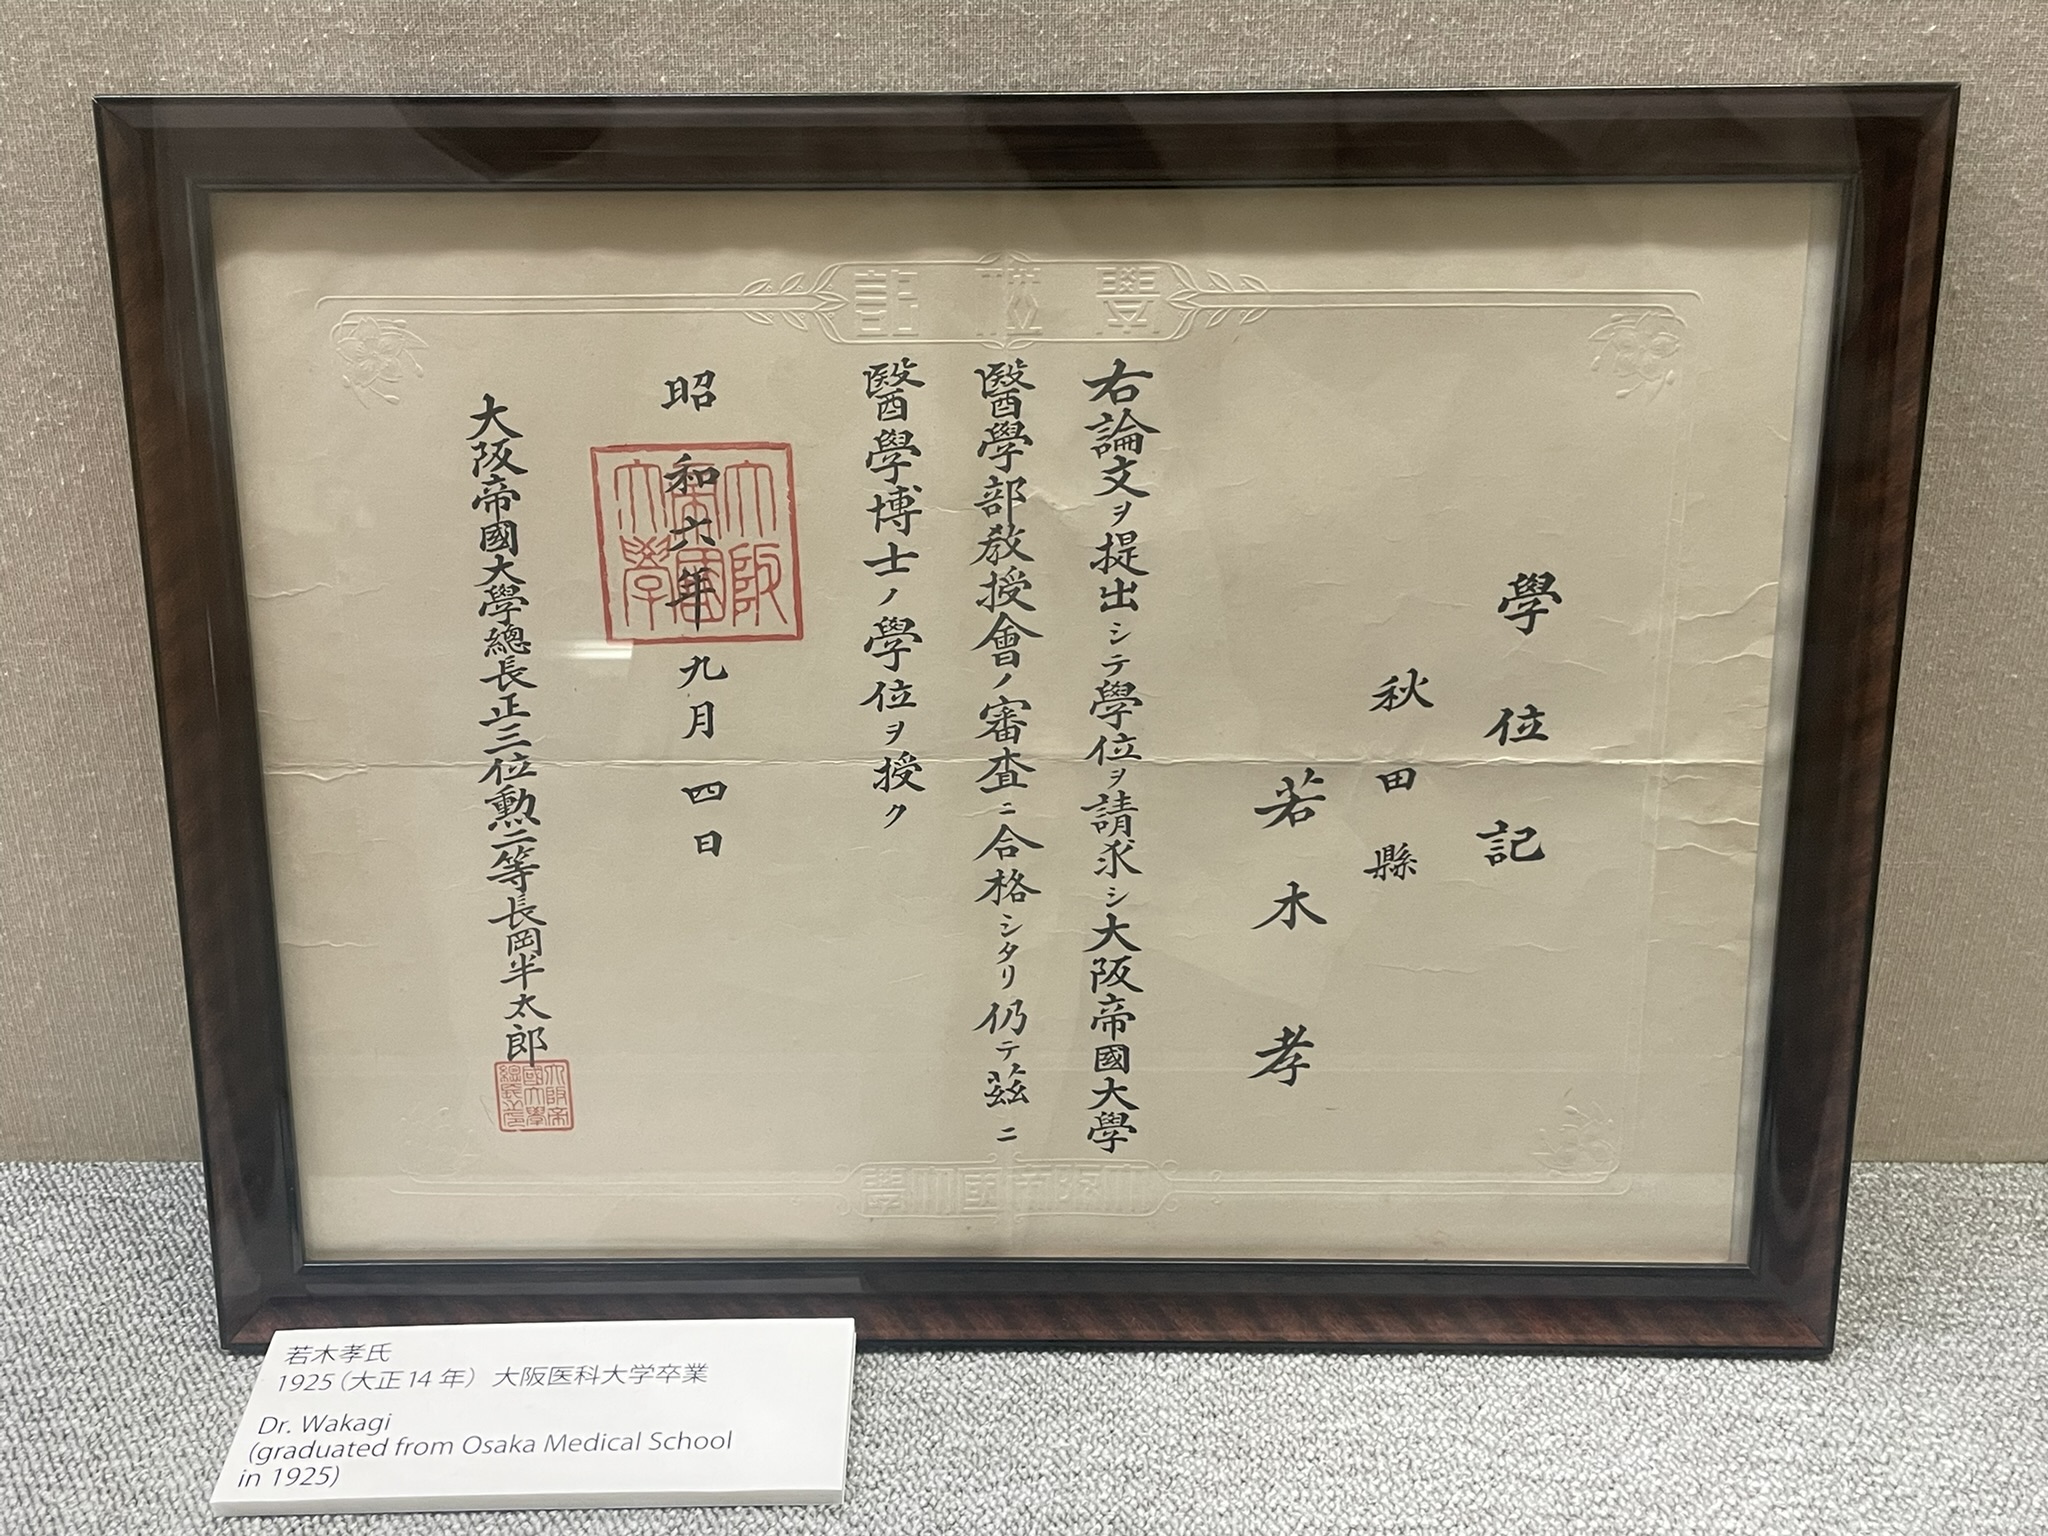 學位記
學位記
秋田縣
若木孝
右論文ヲ提出シテ學位ヲ請求シ大阪帝國大學
醫學部敎授會ノ審査ニ合格シタリ仍テ茲ニ
醫學博士ノ學位ヲ授ク
昭和六年九月四日
大阪帝國大學
大阪帝國大學總長正三位勲二等長岡半太郎
大阪帝國大學總長之印
大阪帝國大學
若木孝氏
1925（大正14年）大阪医科大学卒業
Dr. Wakagi
(graduated from Osaka Medical School
in 1925)